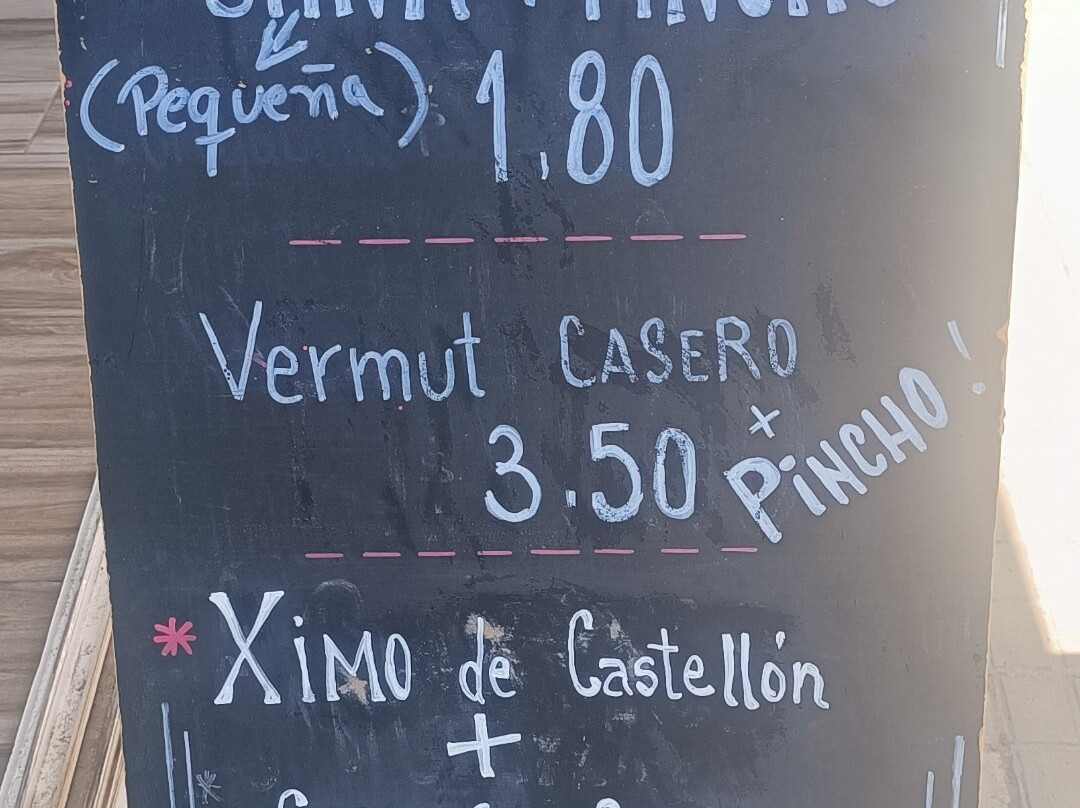 + PINCHO
(Pequeña) 1,80
Vermut CASERO
3.50 + PiNCHO!
* XiMO de Castellón
+